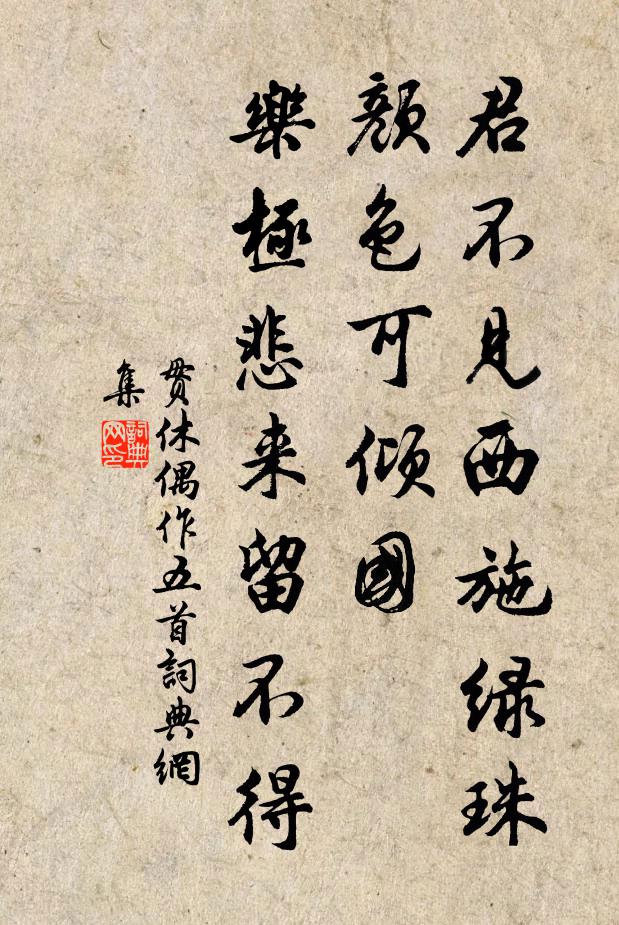 君不見西施綠珠
顏色可傾國
樂極悲来留不得
貫休偶作五首詞典網
集
詞典网印